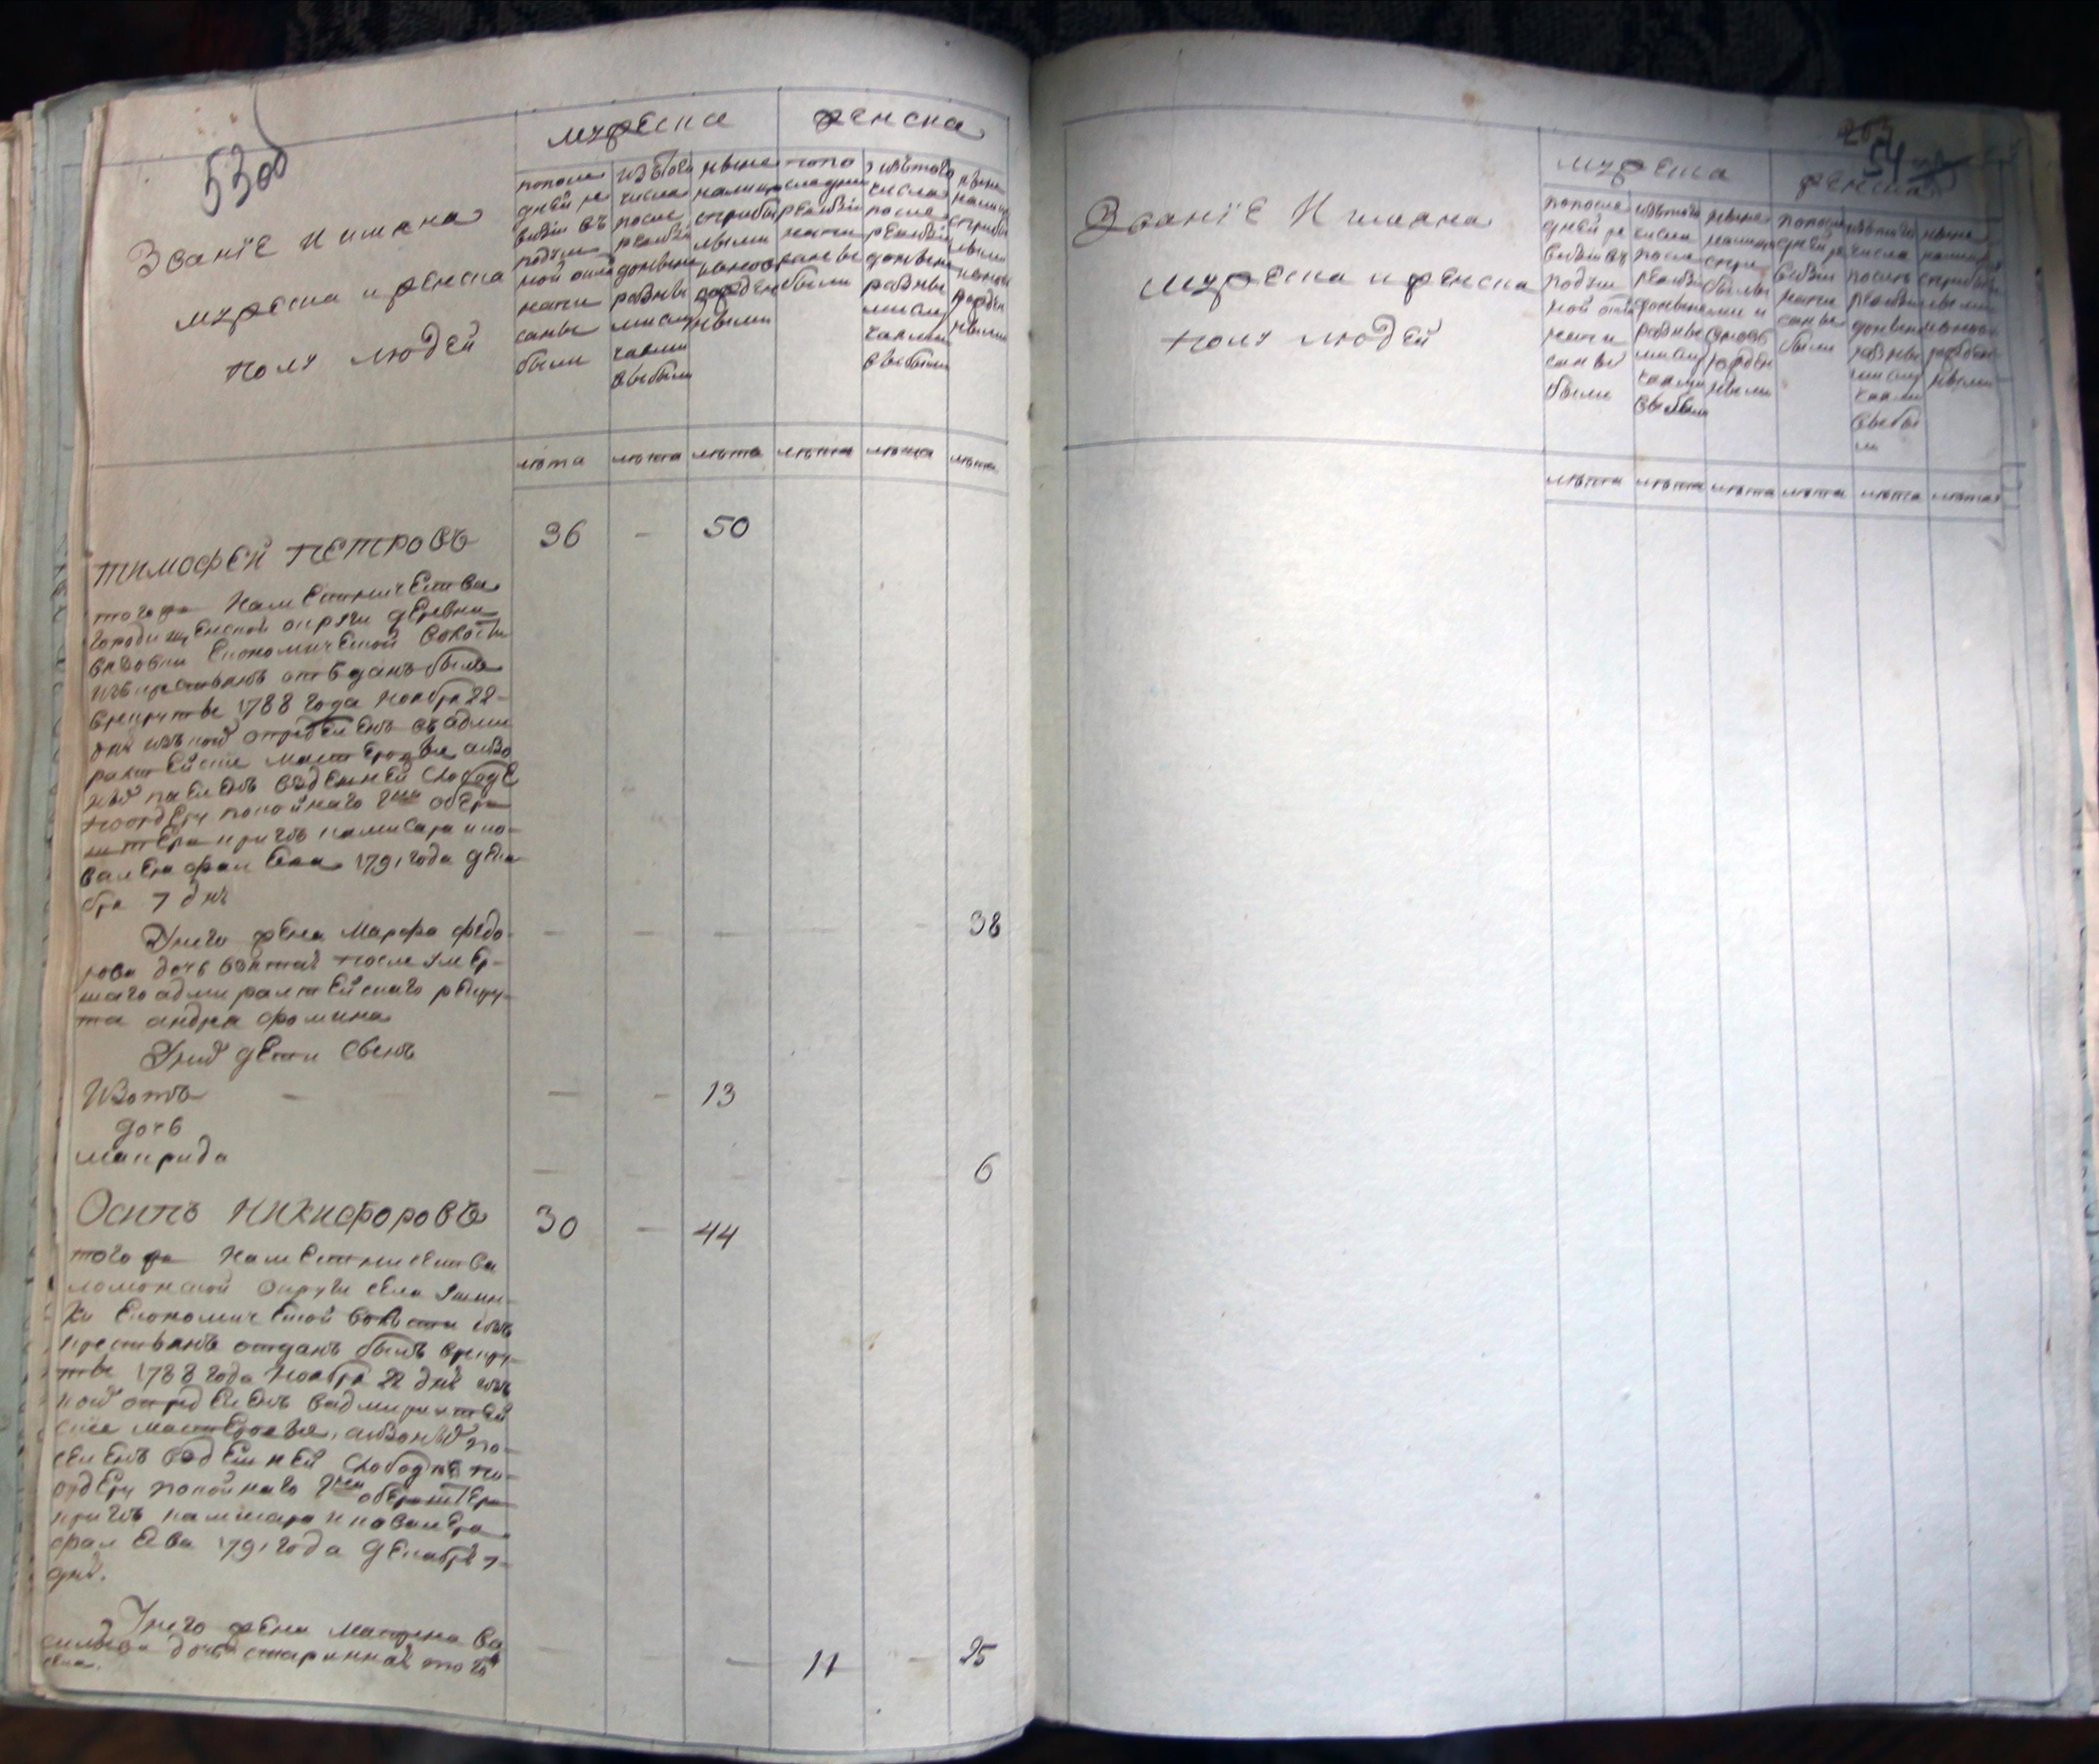 53об
мужеска
женска
Званïе И имена
мужеска и женска
полу людей
попосле
дней ре
визïи въ
подуш
ной окла
напи
саны
были
изътого
числа
после
ревизïи
доныне
разны
ми слу
чаями
выбыли
ныне
налицо
сприбы
лыми
и вновь
рожден
ными
попо
следней
ревизïи
напи
саны
были
изътого
числа
после
ревизïи
доныне
разны
ми слу
чаями
выбыли
ныне
налицо
сприбы
лыми
и вновь
рожден
ными
лѣта лѣта лѣта лѣта лѣта лѣта
Тимофей Петровъ 36 - 50
того же Наместничества
городищенской округи деревни
економической волости
изъ крестьянъ отъданъ былъ
врекруты 1788 года ноября 22
дня изъ коей определенъ въ адми
ралтейские мастеровые а изо
ныхъ поселенъ вздешней слободе
поордеру покойного гдна оберъ
штеръ кригсъ камисара и ко-
валера фалеева 1791 года дека
бря 7 дня
Унего жена Марфа федо- - - - - - 38
рова дочь взятая после умер-
шаго адмиралтейскаго рекру-
та андрея фомина
Унихъ дети свенъ
Изотъ - - - 13
дочь
Маврида - - - - - 6
Осипъ Никифоровъ 30 - 44
того же Наместничества
ломовской округи села
економической волости изъ
крестьянъ отданъ былъ врекру-
ты 1788 года Ноября 22 дня изъ
коей определенъ вадмиралтей
ские мастеровые, а изоныхъ по-
селенъ вздешней слободе по-
ордеру покойнаго гдна оберъштеръ
кригсъ камисара и ковалера
фалеева 1791 года декабря 7-
дня.
Унего жена Матрена ва
сильева дочь старинная того
села. - - - 11 - 25
203
54
мужеска
женска
Званïе И имена
мужеска и женска
полу людей
попосле
дней ре
визïи въ
подуш
ной окла
напи
саны
были
изътого
числа
после
ревизïи
доныне
разны
ми слу
чаями
выбыли
ныне
налицо
спри
былы
ми и
вновь
рожден
ными
попосле
дней ре
визïи
напи
саны
были
изътого
числа
после
ревизïи
доныне
разны
ми слу
чаями
выбы
ли
ныне
налицо
сприбы
лыми
и вновь
рожден
ными
лѣта лѣта лѣта лѣта лѣта лѣта